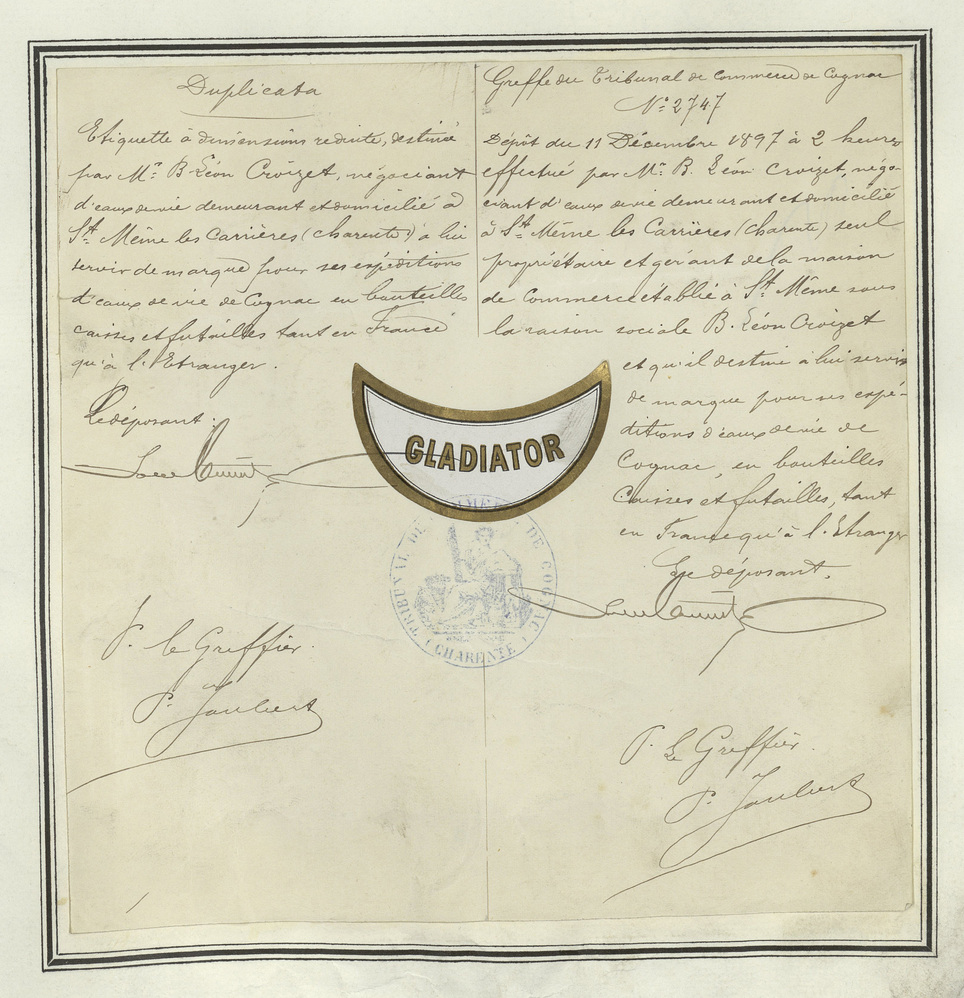 Duplicata
Etiquette à dimensions réduite, destinée
par Mr. B. Léon Croizet, négociant
d'eaux de vie demeurant et domicilié à
St. Même les Carrières (Charente) à lui
servir de marque pour ses expéditions
d'eaux de vie de Cognac en bouteilles
caisses et futailles tant en France
qu'à l'Etranger.
Le déposant.
P. le Greffier.
P. Joubert
Greffe du Tribunal de Commerce de Cognac
No. 2747
Dépôt du 11 Décembre 1897 à 2 heures
effectué par Mr. B. Léon Croizet, négo-
ciant d'eaux de vie demeurant et domicilié
à St. Même les Carrières (Charente) seul
propriétaire et gérant de la maison
de Commerce établie à St. Même sous
la raison sociale B. Léon Croizet
et qu'il destine à lui servir
de marque pour ses expé-
ditions d'eaux de vie de
Cognac, en bouteilles
Caisses et futailles, tant
en France qu'à l'Etranger
Le déposant.
P. Le Greffier.
P. Joubert
GLADIATOR
TRIBUNAL DE COMMERCE DE COGNAC
CHARENTE